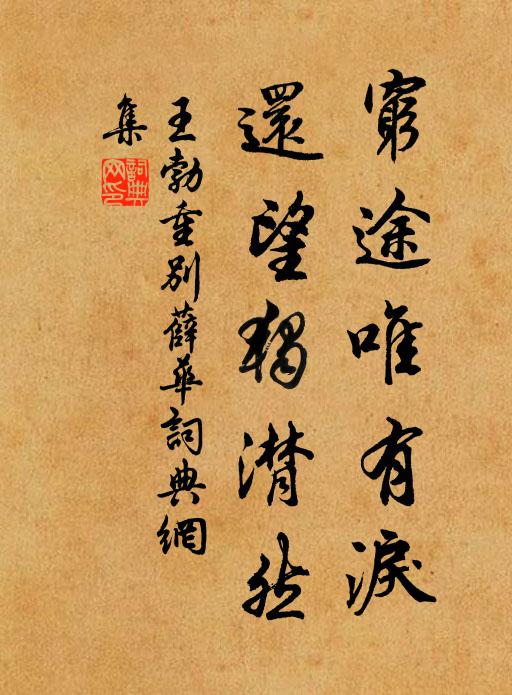 窮途唯有淚
還望獨潸然
王勃重別薛華詞典網
集
詞典網印